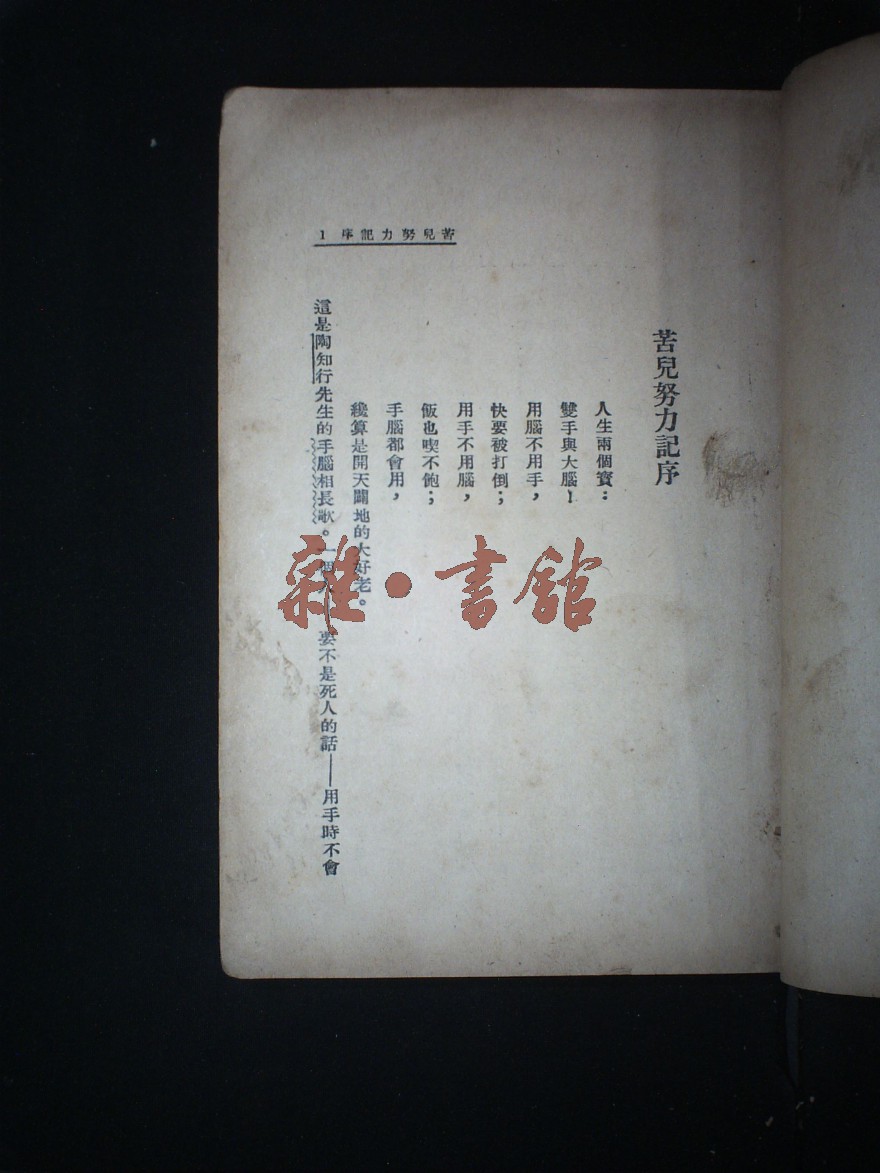 苦兒努力記序 1
苦兒努力記序
人生兩個寶：
雙手與大腦！
用腦不用手，
快要被打倒；
用手不用腦，
飯也喫不飽；
手腦都會用，
纔算是開天闢地的大好老。
這是陶知行先生的手腦相長歌。一個人——要不是死人的話——用手時不會
雜·書館